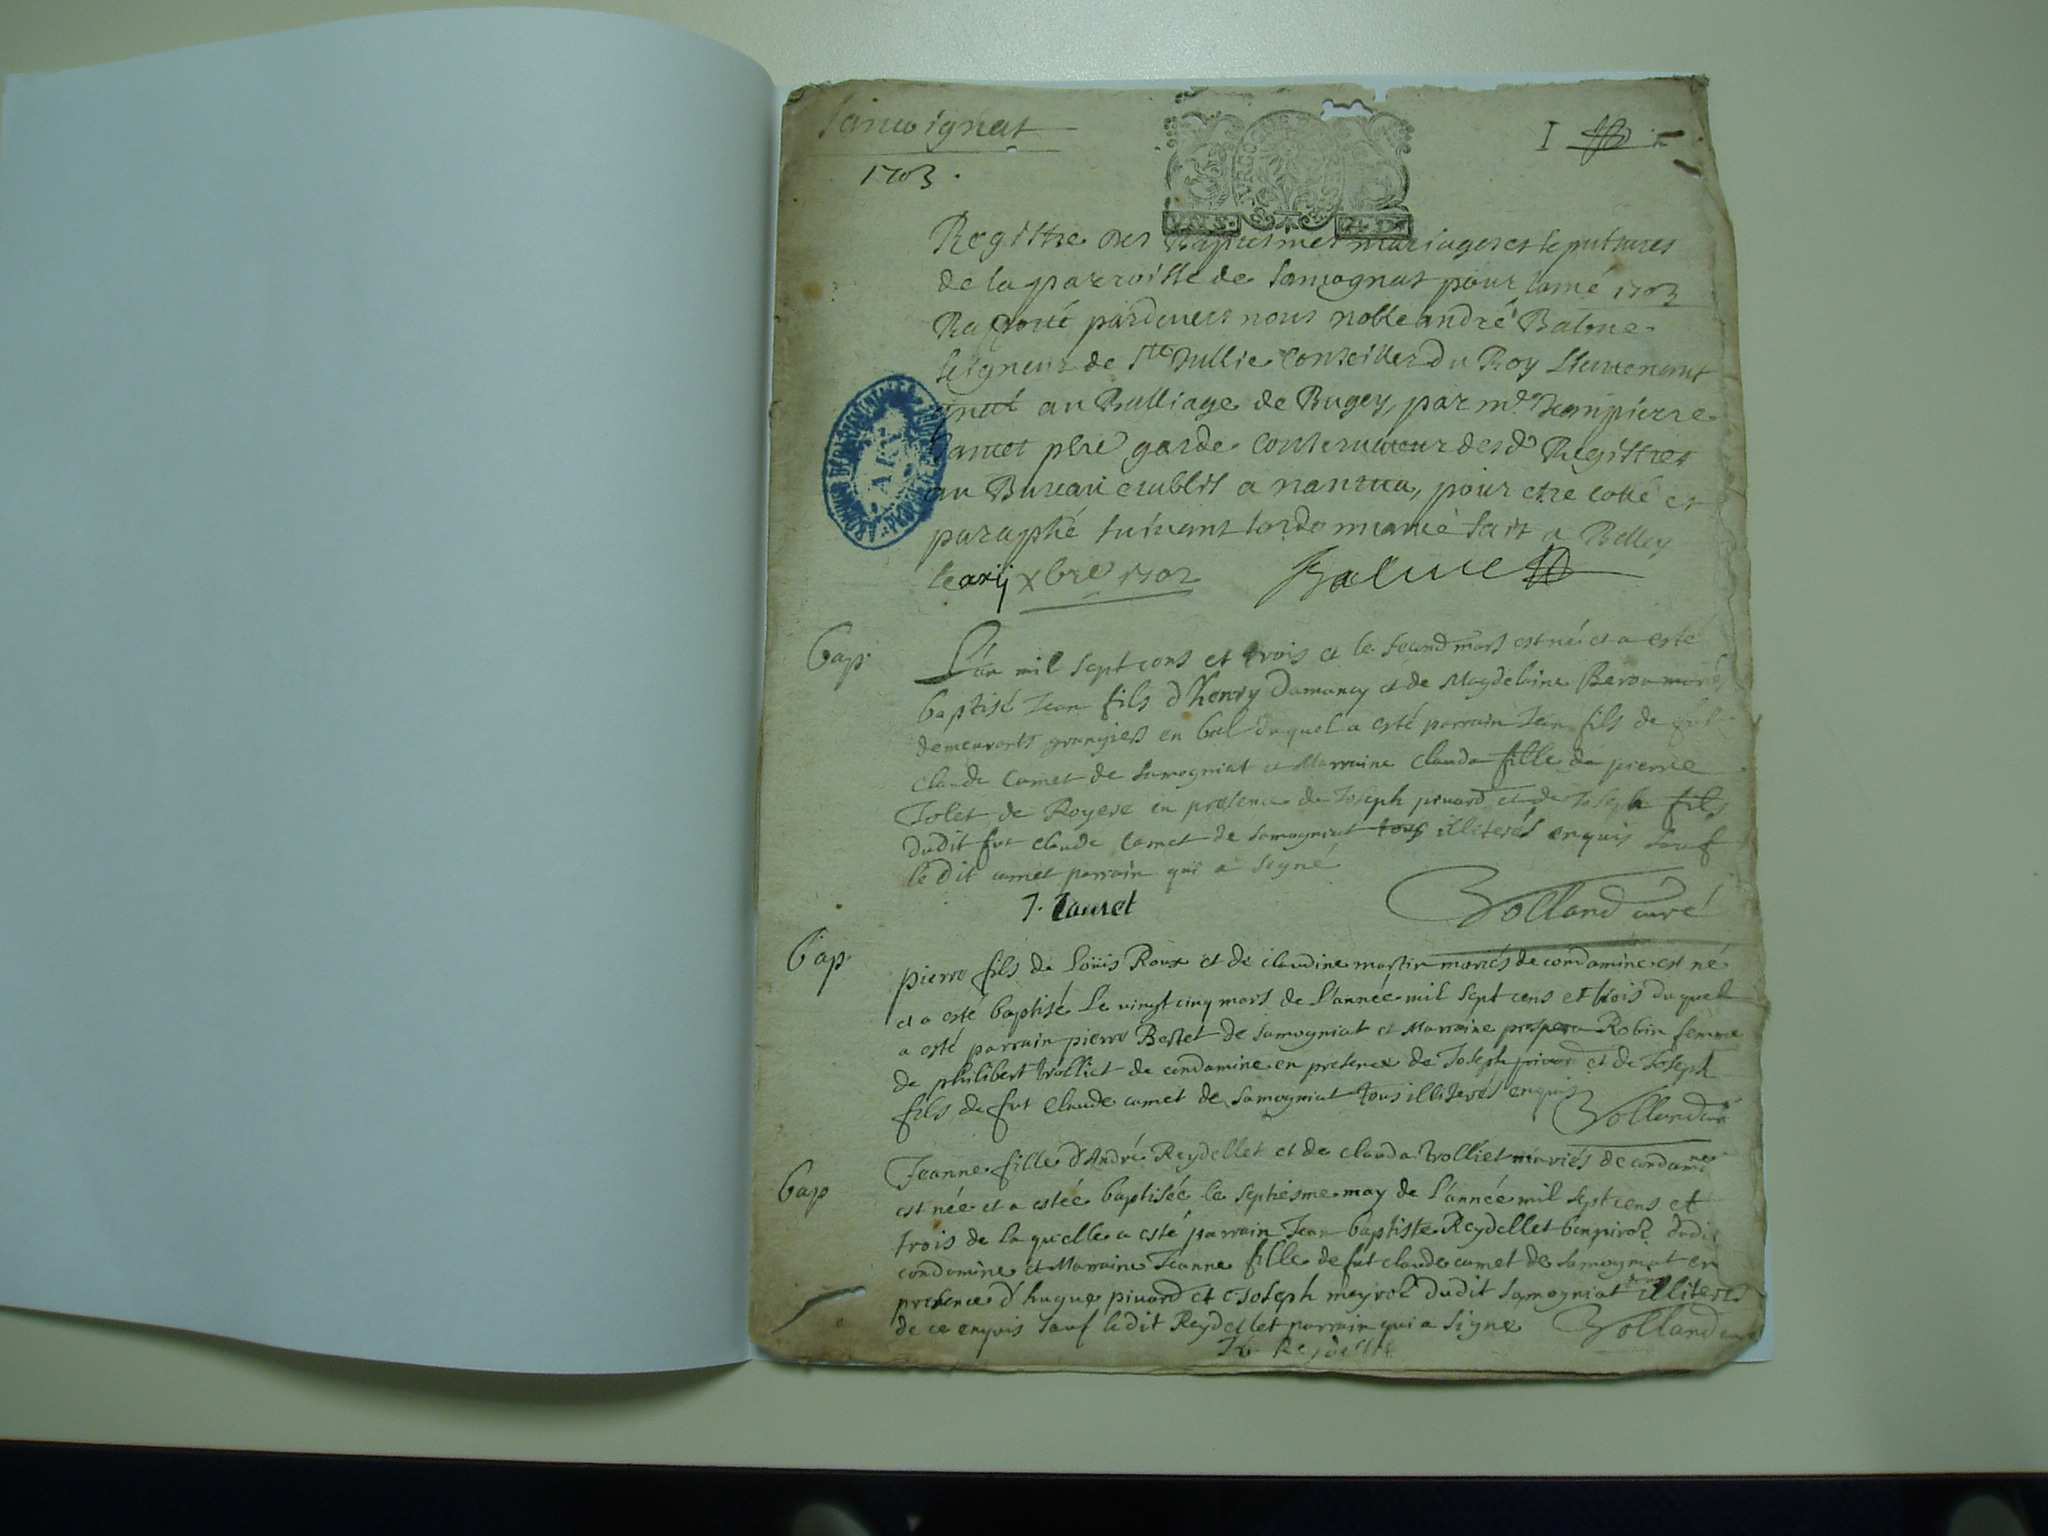 Samoignat
1703.
I
Registre des Baptesmes mariages et sepultures
de la parroisse de Samognat pour lanné 1703
Raporté pardevers nous noble andré Balme
seigneur de Ste Jullie Conseiller du Roy Lieutenant
gnal au Balliage de Bugey, par me Jean pierre
pbre garde conservateur desd Registres
au Bureau establit a nantua, pour etre cotté et
paraphé suivant lordonnance fait a Belley
le xbre 1702 Balme
bap.
L'an mil sept cens et trois et le second mars est né et a esté
baptisé Jean fils d'henry Damancy et de Magdelaine mariés
demeurants grangiers en bel duquel a esté parrain Jean fils de fut
claude Camet de Samogniat et Marraine clauda fille de pierre
Jolet de Royere en presence de Joseph pinard et de Joseph fils
dudit fut claude Camet de Samogniat tous illiterés enquis sauf
le dit camet parrain qui a signé
J. Camet Volland curé
bap.
pierre fils de Loüis Roux et de claudine martin mariés de condamine est né
et a esté baptisé le vingt cinq mars de l'année mil sept cens et trois duquel
a esté parrain pierre Bestet de Samogniat et Marraine prospera Robin femme
de philibert Volliet de condamine en presence de Joseph pinard et de Joseph
fils de fut Claude camet de Samogniat tous illiterés enquis Volland curé
bap
Jeanne fille d'André Reydellet et de clauda Volliet mariés de condamine
est née et a estée baptisée le septiesme may de l'année mil sept cens et
trois de laquelle a esté parrain Jean baptiste Reydellet dudit
condamine et Marraine Jeanne fille de fut claude camet de Samogniat en
presence d'hugue pinard et Joseph dudit Samogniat illiterés
de ce enquis sauf ledit Reydellet parrain qui a signé Volland curé
Reydellet